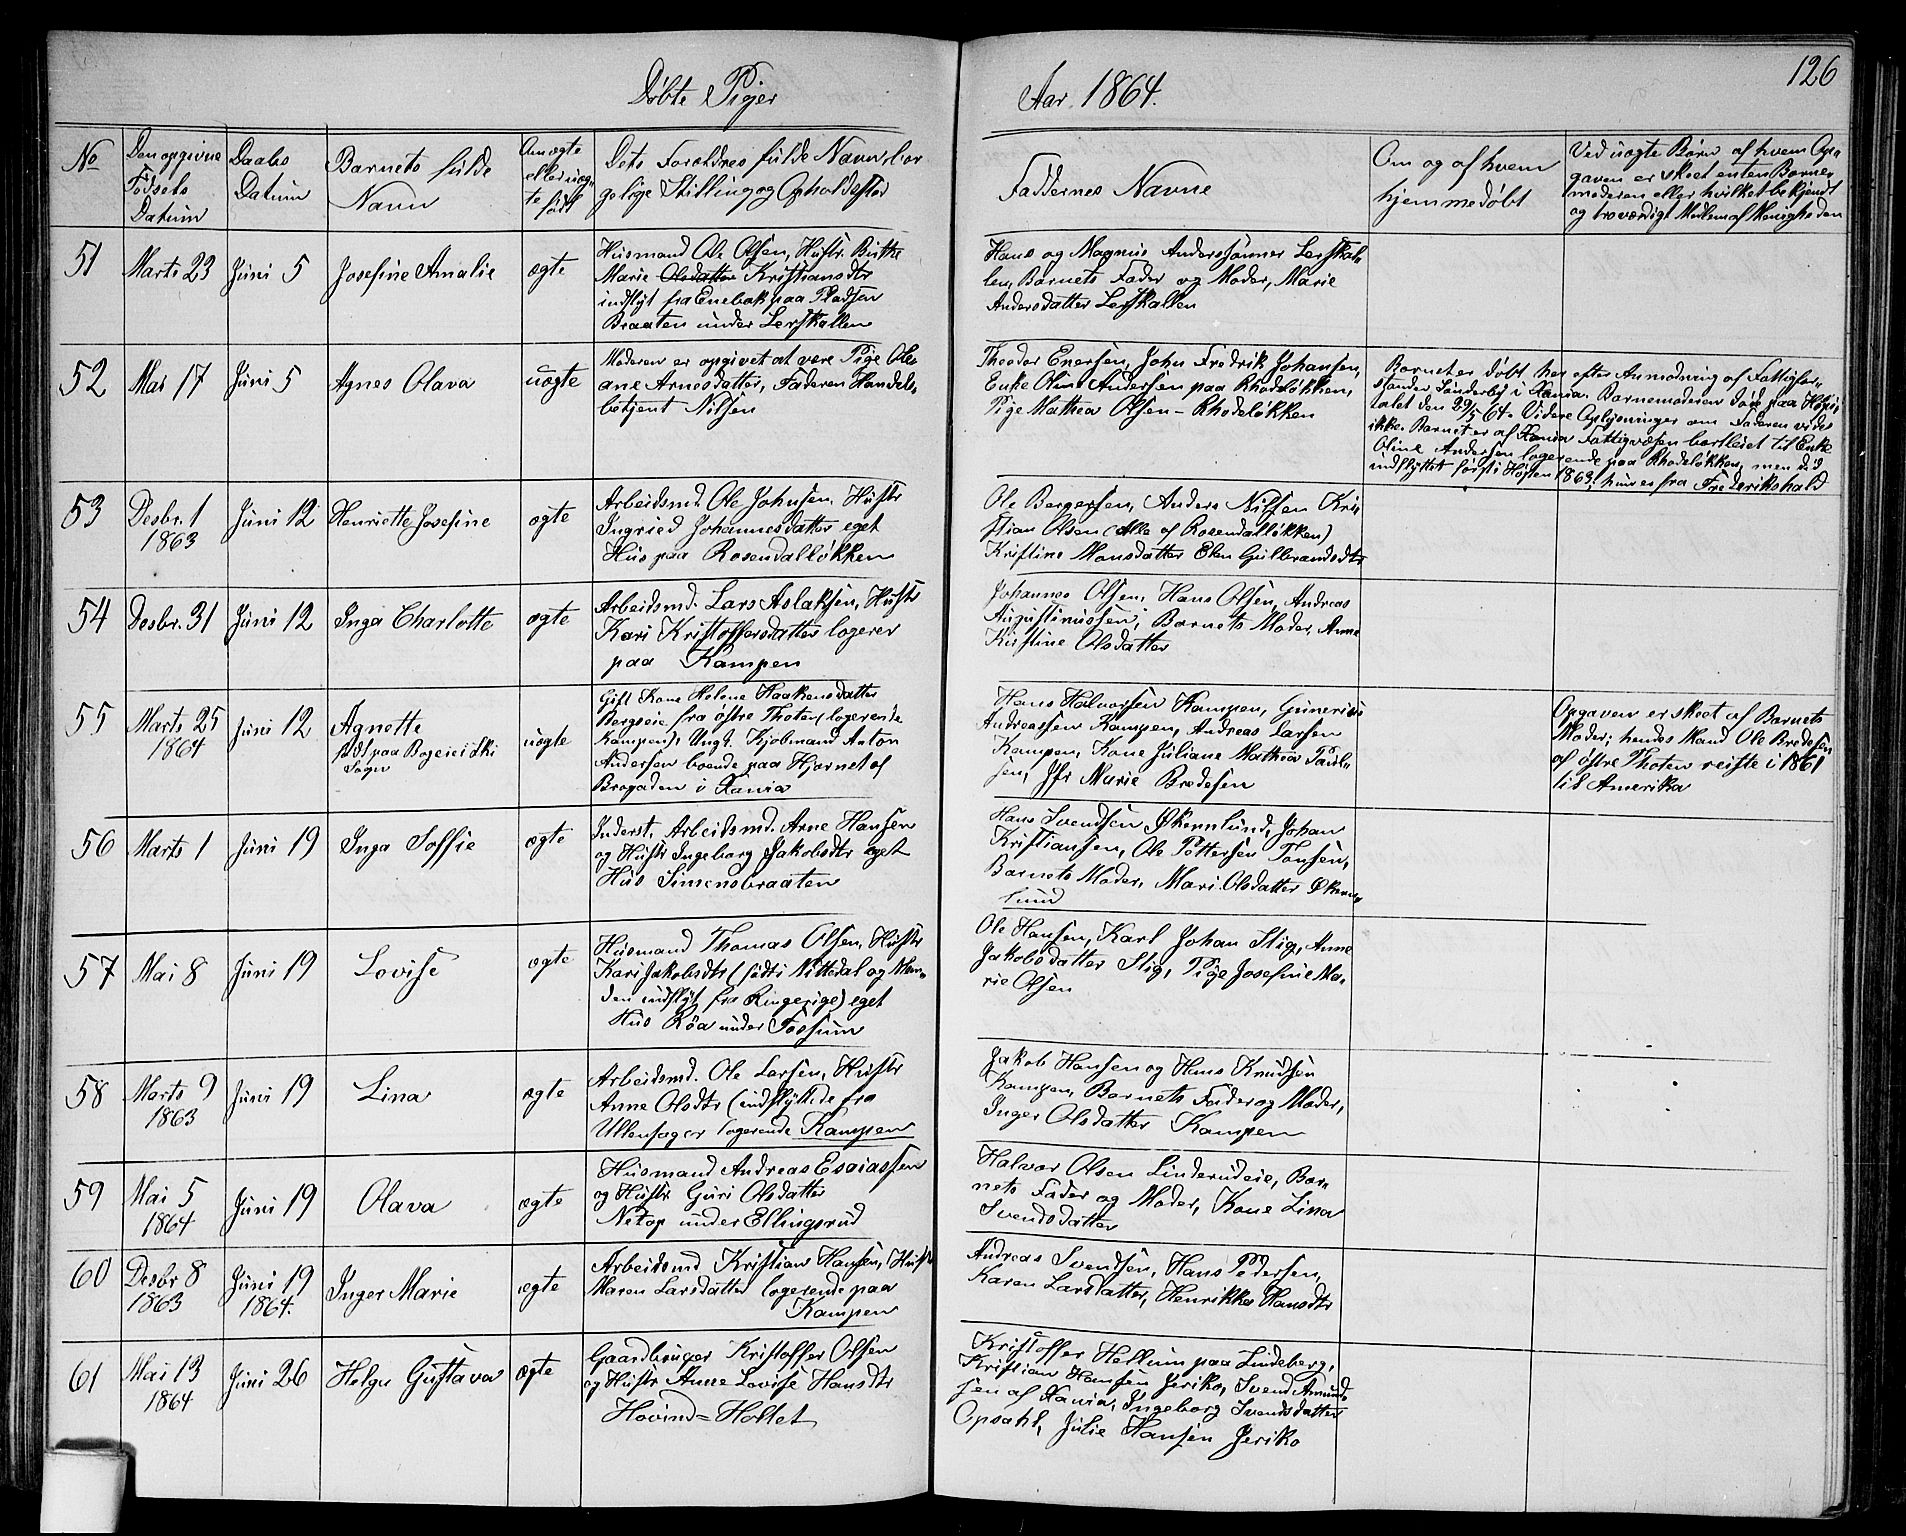 126
Døbte Piger
Aar 1864.
No
Den opgivne
Fødsels
Datum
Daabs
Datum
Barnets fulde
Navn
Om ægte
eller uæg-
te født
Dets Forældres fulde Navn bor
gelige Stilling og Opholdssted
Faddernes Navne
Om og af hvem
hjemmedøbt
Ved uægte Børn af hvem Op-
gaven er skeet enten Barne-
moderen eller hvilket bekjendt
og troværdigt Medlem af Menigheden
51
Marts 23
Juni 5
Josefine Amalie
ægte
Husmand Ole Olsen, Hustr. Birthe
Marie Olsdatter Kristiansdtr
indflyt fra Enebak paa Pladsen
Braaten under Lerskallen
Hans og Magnus Anderssønner Lerskal-
len, Barnets Fader og Moder, Marie
Andersdatter Lerskallen
52
Mai 17
Juni 5
Agnes Olava
uægte
Moderen er opgivet at være Pige Ole-
ane Arnesdatter, Faderen Handels-
betjent Nilsen
Theodor Enersen, John Fredrik Johansen,
Enke Oline Andersen paa Rhodeløkken,
Pige Mathea Olsen - Rhodeløkken
Barnet er døbt her efter Anmodning af Fattigfor-
stander Sønderby i Xania. Barnemoderen døde paa Hospi-
talet den 29/5 64. Videre Oplysninger om Faderen vides
ikke. Barnet er af Xania Fattigvæsen bortleiet til Enke
Oline Andersen logerende paa Rhodeløkken, men did
indflyttet først i Høsten 1863, hun er fra Frederikshald
53
Desbr. 1
1863
Juni 12
Henriette Josefine
ægte
Arbeidsmd. Ole Johnsen, Hustr
Ingried Johannesdatter eget
Hus paa Rosendalløkken
Ole Bergersen, Anders Nilsen Kri-
stian Olsen (Alle af Rosendalløkken)
Kristine Monsdatter Elen Gulbrandsdtr
54
Desbr. 31
Juni 12
Inga Charlotte
ægte
Arbeidsmd. Lars Aslaksen, Hustr
Kari Kristoffersdatter logerer
paa Kampen
Johannes Olsen, Hans Olsen, Andreas
Augustinussen, Barnets Moder, Anne
Kirstine Olsdatter
55
Marts 25
1864
Juni 12
Agnette
født paa Bøieie i Ski
Sogn
uægte
Gift Kone Helene Haakensdatter
Bergseie fra østre Thoten (logerende
Kampen), Ungk. Kjøbmand Anton
Andersen boende paa Hjørnet af
Brogaden i Xania
Hans Halvorsen Kampen, Gunerius
Andreassen Kampen, Andreas Larsen
Kampen, Kone Juliane Mathea Paul-
sen, Jfr Marie Bredesen
Opgaven er skeet af Barnets
Moder; hendes Mand Ole Bredesen
af østre Thoten reiste i 1861
til Amerika
56
Marts 1
Juni 19
Inga Soffie
ægte
Inderst. Arbeidsmd. Arne Hansen
og Hustr Ingeborg Jakobsdtr eget
Hus Simensbraaten
Hans Svendsen Økernlund, Johan
Kristiansen, Ole Pettersen Tonsen,
Barnets Moder, Mari Olsdatter Økern-
lund
57
Mai 8
Juni 19
Lovise
ægte
Husmand Thomas Olsen, Hustr
Kari Jakobsdtr (født i Nittedal og Man-
den indflyt fra Ringerige) eget
Hus Røa under Fossum
Ole Hansen, Karl Johan Stig, Anne
Jakobsdatter Stig, Pige Josefine Ma-
rie Olsen
58
Marts 9
1863
Juni 19
Lina
ægte
Arbeidsmd. Ole Larsen, Hustr
Anne Olsdtr (indflyttede fra
Ullensager logerende Kampen
Jakob Hansen og Hans Knudsen
Kampen, Barnets Fader og Moder,
Inger Olsdatter Kampen
59
Mai 5
1864
Juni 19
Olava
ægte
Husmand Andreas Esaiassen
og Hustr Guri Olsdatter
Nitop under Ellingsrud
Halvor Olsen Linderudeie, Bar-
nets Fader og Moder, Kone Lina
Svendsdatter
60
Desbr 8
1863
Juni 19
1864.
Inger Marie
ægte
Arbeidsmd Kristian Hansen, Hustr
Maren Larsdatter logerende paa
Kampen
Andreas Svendsen, Hans Pedersen,
Karen Larsdatter, Henrikke Hansdtr
61
Mai 13
1864
Juni 26
Helga Gustava
ægte
Gaardbruger Kristoffer Olsen
og Hustr Anne Lovise Hansdtr
Hovind=Holtet
Kristoffer Hellum paa Lindeberg,
Kristian Hansen Jeriko, Svend Amund-
sen af Xania, Ingeborg Svendsdatter
Opsahl, Julie Hansen Jeriko